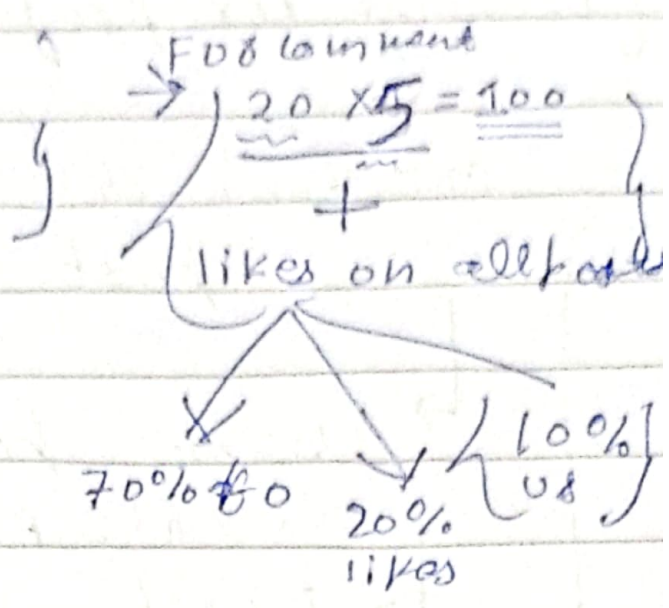 For comment
→ 20 × 5 = 100
+
likes on all posts
70% to
20% likes
{10% us}